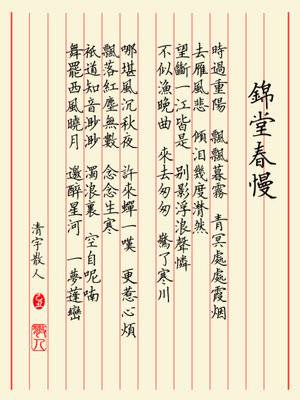 錦堂春慢
時過重陽 飄飄暮霧 青冥處處霞烟
去雁風悲 傾泪幾度潸然
望斷一江皆是 別影浮浪聲憐
不似漁晚曲 來去匆匆 驚了寒川
哪堪風沉秋夜 許來蟬一嘆 更惹心煩
飄落紅塵無數 念念生寒
祇道知音渺渺 濁浪裏 空自呢喃
舞罷西風曉月 邀醉星河 一夢蓬巒
清宇散人